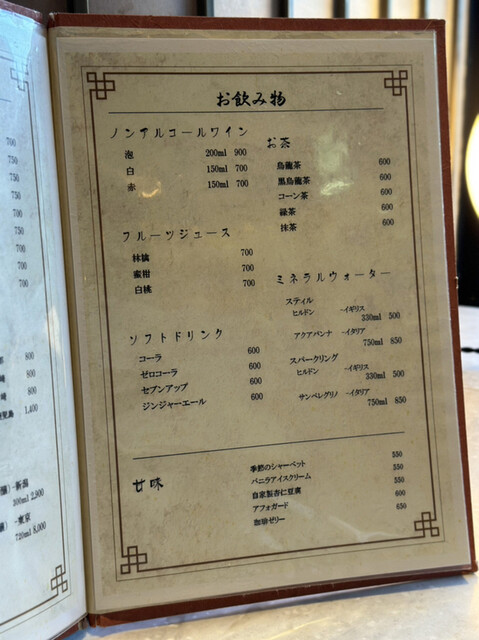 700
750
750
750
700
750
750
750
800
800
800
1,400
-新潟
300ml 2,900
-東京
720ml 8,000
お飲み物
ノンアルコールワイン
泡 200ml 900
白 150ml 700
赤 150ml 700
フルーツジュース
林檎 700
蜜柑 700
白桃 700
ソフトドリンク
コーラ 600
ゼロコーラ 600
セブンアップ 600
ジンジャーエール 600
お茶
烏龍茶 600
黒烏龍茶 600
コーン茶 600
緑茶 600
抹茶 600
ミネラルウォーター
スティル
ヒルドン -イギリス
330ml 500
アクアパンナ -イタリア
750ml 850
スパークリング
ヒルドン -イギリス
330ml 500
サンペレグリノ -イタリア
750ml 850
甘味
季節のシャーベット 550
バニラアイスクリーム 550
自家製杏仁豆腐 600
アフォガード 650
珈琲ゼリー